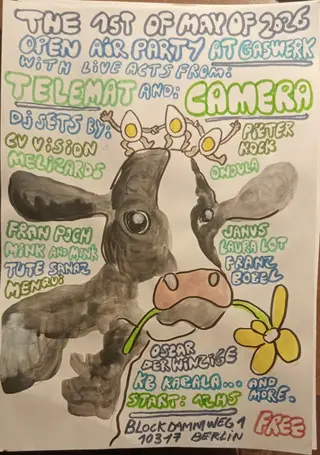 THE 1ST OF MAY OF 2026
OPEN AIR PARTY AT GASWERK
WITH LIVE ACTS FROM:
TELEMAT AND: CAMERA
DJ SETS BY:
CV VISION
MELIZARDS
PIETER
KOCK
ONDULA
FRAN POCH
MINK AND MINK
TUTE SANAZ
MENQUI
JANUS
LAURA LOT
FRANZ
BOBEL
OSCAR
DER WINZIGE
KB KABALA... AND
MORE.
START: 12 MS
FREE
BLOCKDAMMWEG 1
10317 BERLIN